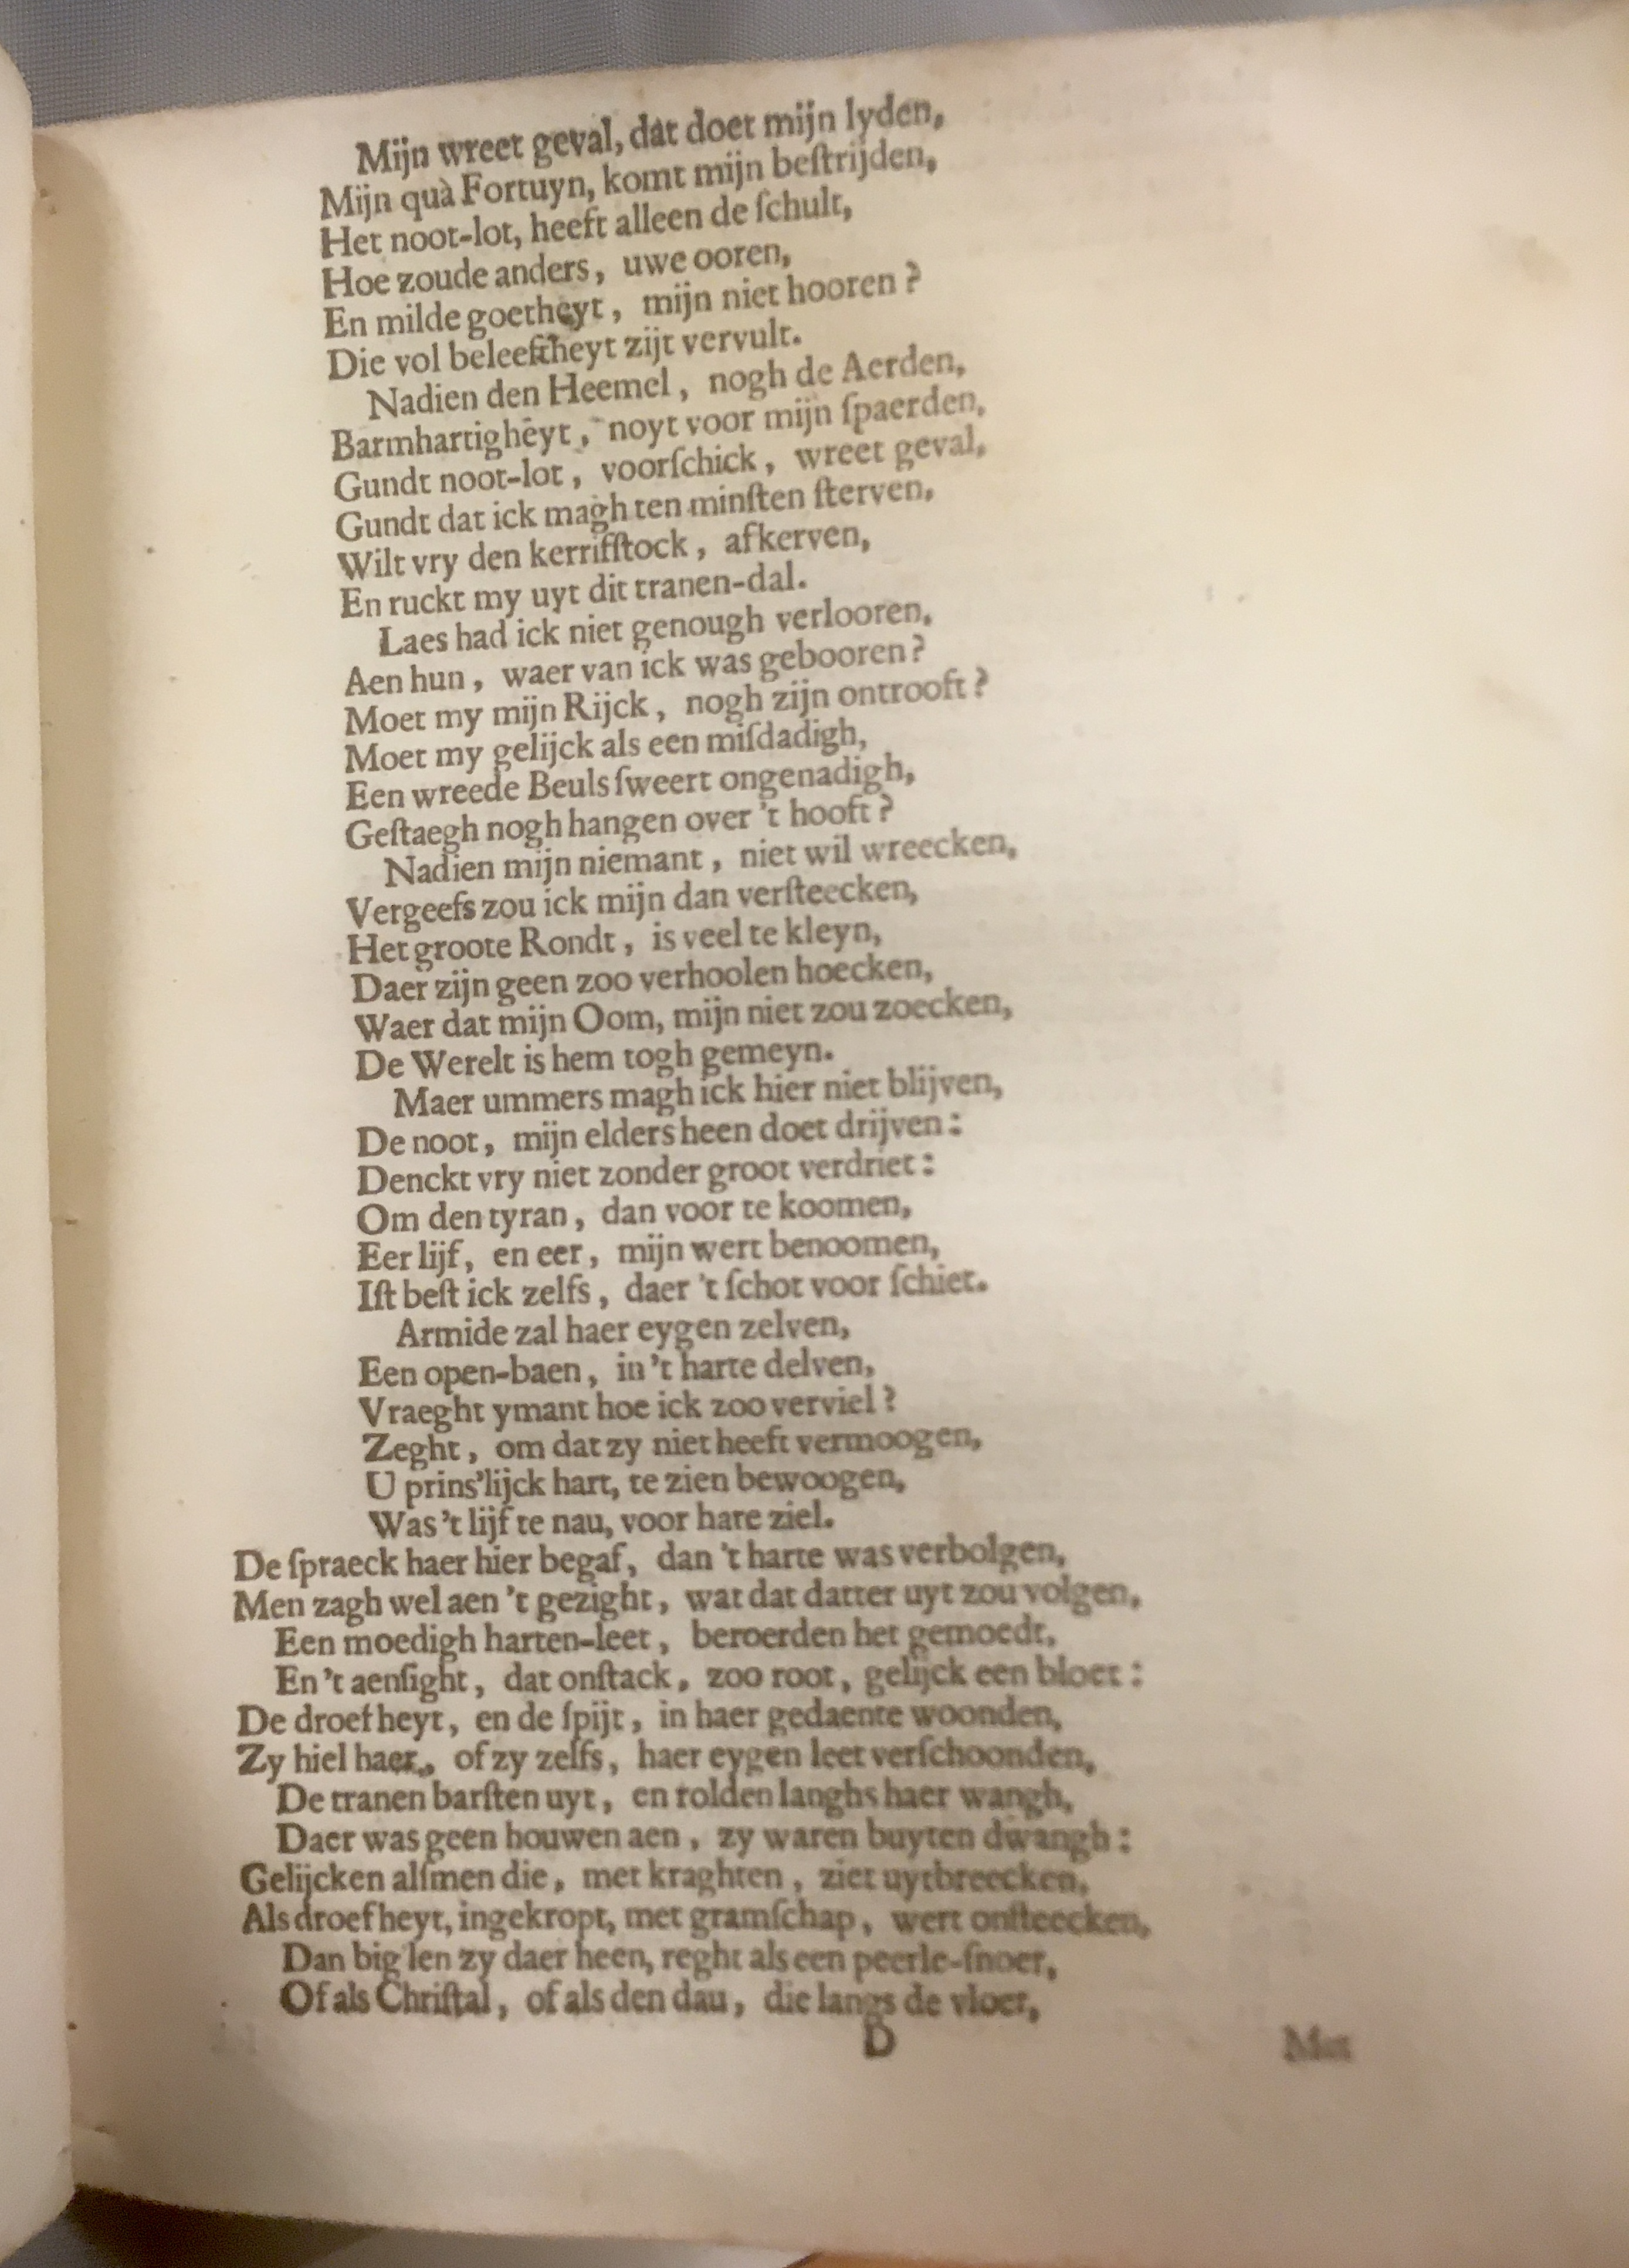 Mijn wreet geval, dat doet mijn lyden,
Mijn quà Fortuyn, komt mijn beſtrijden,
Het noot-lot, heeft alleen de ſchult,
Hoe zoude anders, uwe ooren,
En milde goetheyt, mijn niet hooren?
Die vol beleeftheyt zijt vervult.
Nadien den Heemel, nogh de Aerden,
Barmhartigheyt, noyt voor mijn ſpaerden,
Gundt noot-lot, voorſchick, wreet geval,
Gundt dat ick magh ten minſten ſterven,
Wilt vry den kerrifſtock, afkerven,
En ruckt my uyt dit tranen-dal.
Laes had ick niet genough verlooren,
Aen hun, waer van ick was gebooren?
Moet my mijn Rijck, nogh zijn ontrooft?
Moet my gelijck als een miſdadigh,
Een wreede Beuls ſweert ongenadigh,
Geſtaegh nogh hangen over 't hooft?
Nadien mijn niemant, niet wil wreecken,
Vergeefs zou ick mijn dan verſteecken,
Het groote Rondt, is veel te kleyn,
Daer zijn geen zoo verhoolen hoecken,
Waer dat mijn Oom, mijn niet zou zoecken,
De Werelt is hem togh gemeyn.
Maer ummers magh ick hier niet blijven,
De noot, mijn elders heen doet drijven:
Denckt vry niet zonder groot verdriet:
Om den tyran, dan voor te koomen,
Eer lijf, en eer, mijn wert benoomen,
Iſt beſt ick zelfs, daer 't ſchot voor ſchiet.
Armide zal haer eygen zelven,
Een open-baen, in 't harte delven,
Vraeght ymant hoe ick zoo verviel?
Zeght, om dat zy niet heeft vermoogen,
U prins'lijck hart, te zien bewoogen,
Was 't lijf te nau, voor hare ziel.
De ſpraeck haer hier begaf, dan 't harte was verbolgen,
Men zagh wel aen 't gezight, wat dat datter uyt zou volgen,
Een moedigh harten-leet, beroerden het gemoedt,
En 't aenſight, dat onſtack, zoo root, gelijck een bloet:
De droefheyt, en de ſpijt, in haer gedaente woonden,
Zy hiel haer, of zy zelfs, haer eygen leet verſchoonden,
De tranen barſten uyt, en rolden langhs haer wangh,
Daer was geen houwen aen, zy waren buyten dwangh:
Gelijcken alſmen die, met kraghten, ziet uytbreecken,
Als droefheyt, ingekropt, met gramſchap, wert onſteecken,
Dan big'len zy daer heen, reght als een peerle-ſnoer,
Of als Chriſtal, of als den dau, die langs de vloer,
D
Met